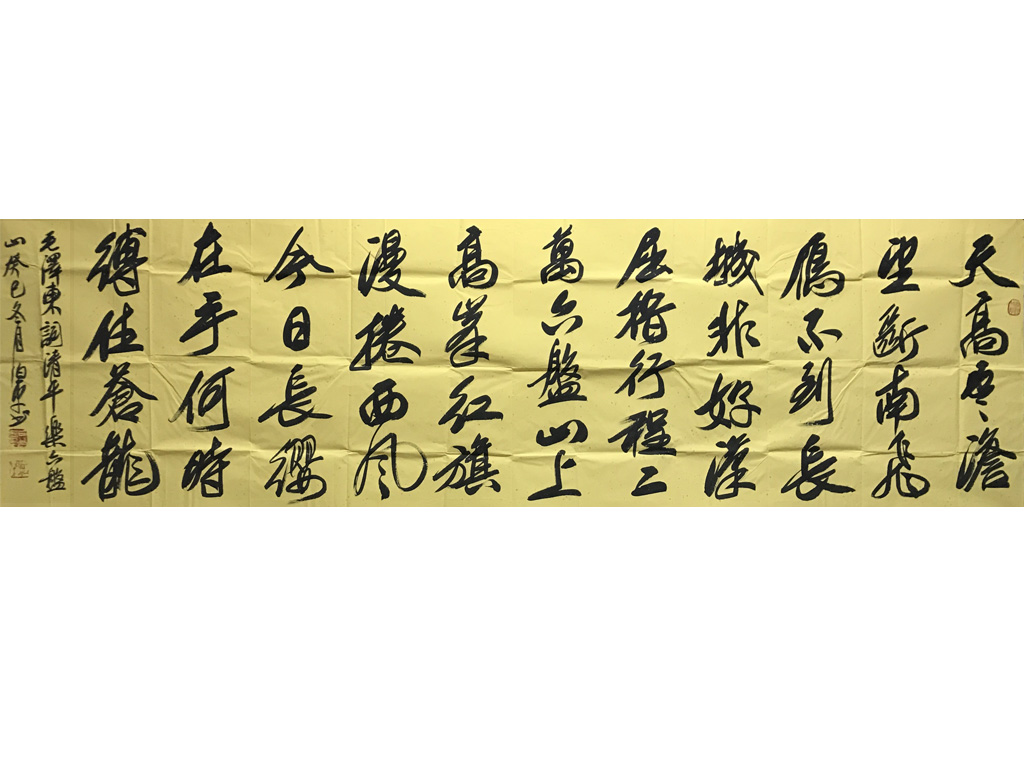 天高雲澹
望斷南飛
雁不到長
城非好漢
屈指行程二
萬六盤山上
高峯紅旗
漫捲西風
今日長纓
在手何時
縛住蒼龍
毛澤東詞清平樂六盤
山癸巳冬月